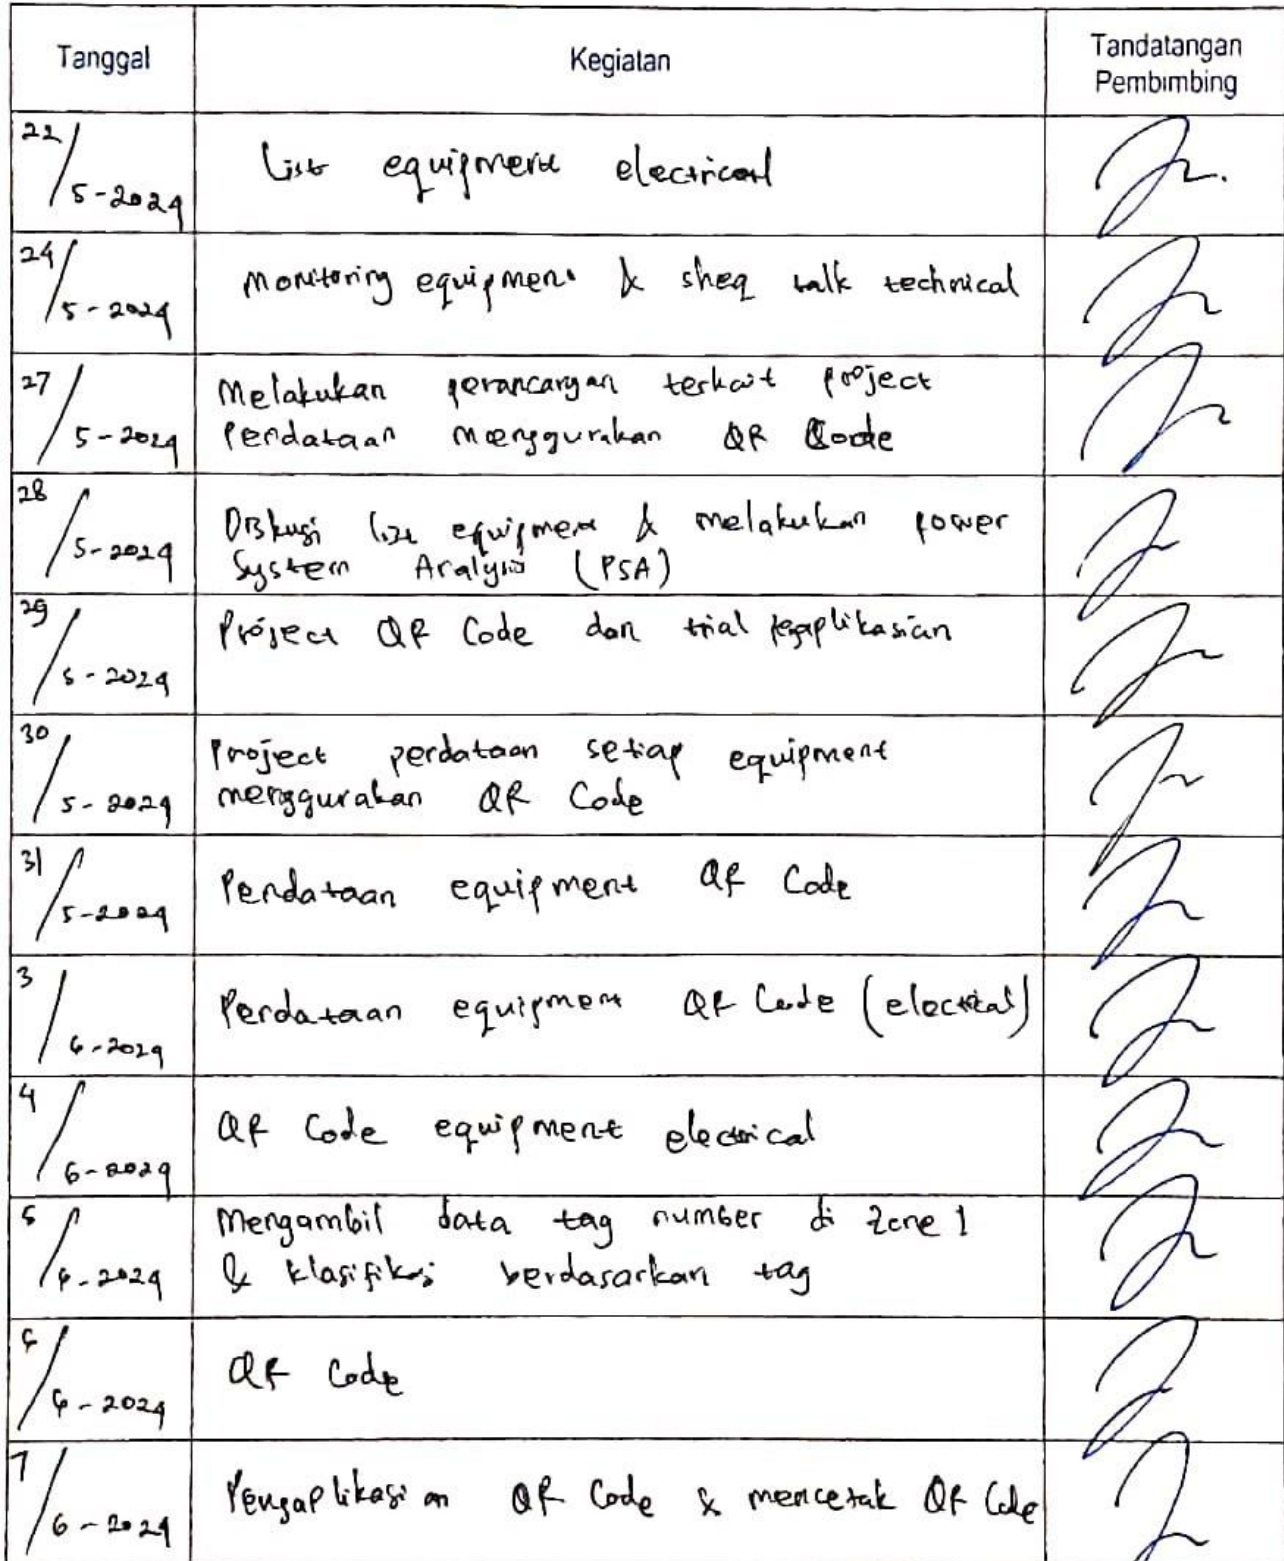 Tanggal Kegiatan Tandatangan Pembimbing
22/5-2024 List equipment electrical
24/5-2024 Monitoring equipment & sheq talk technical
27/5-2024 Melakukan perancangan terkait project
Pendataan menggunakan QR Code
28/5-2024 Diskusi list equipment & melakukan power
System Analysis (PSA)
29/5-2024 Project QR Code dan trial pengaplikasian
30/5-2024 Project pendataan setiap equipment
menggunakan QR Code
31/5-2024 Pendataan equipment QR Code
3/6-2024 Pendataan equipment QR Code (electrical)
4/6-2024 QR Code equipment electrical
5/6-2024 Mengambil data tag number di Zone 1
& klasifikasi berdasarkan tag
6/6-2024 QR Code
7/6-2024 Pengaplikasian QR Code & mencetak QR Code